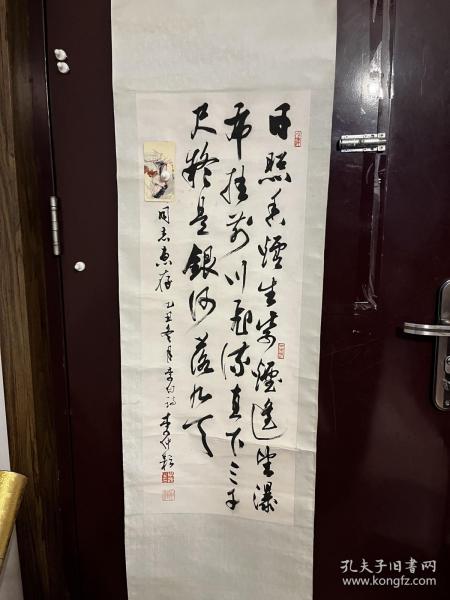 日照香炉生紫烟遥望瀑
布挂前川飞流直下三千
尺疑是银河落九天
同志惠存 乙丑冬月李白诗 李仲
孔夫子旧书网
www.kongfz.com